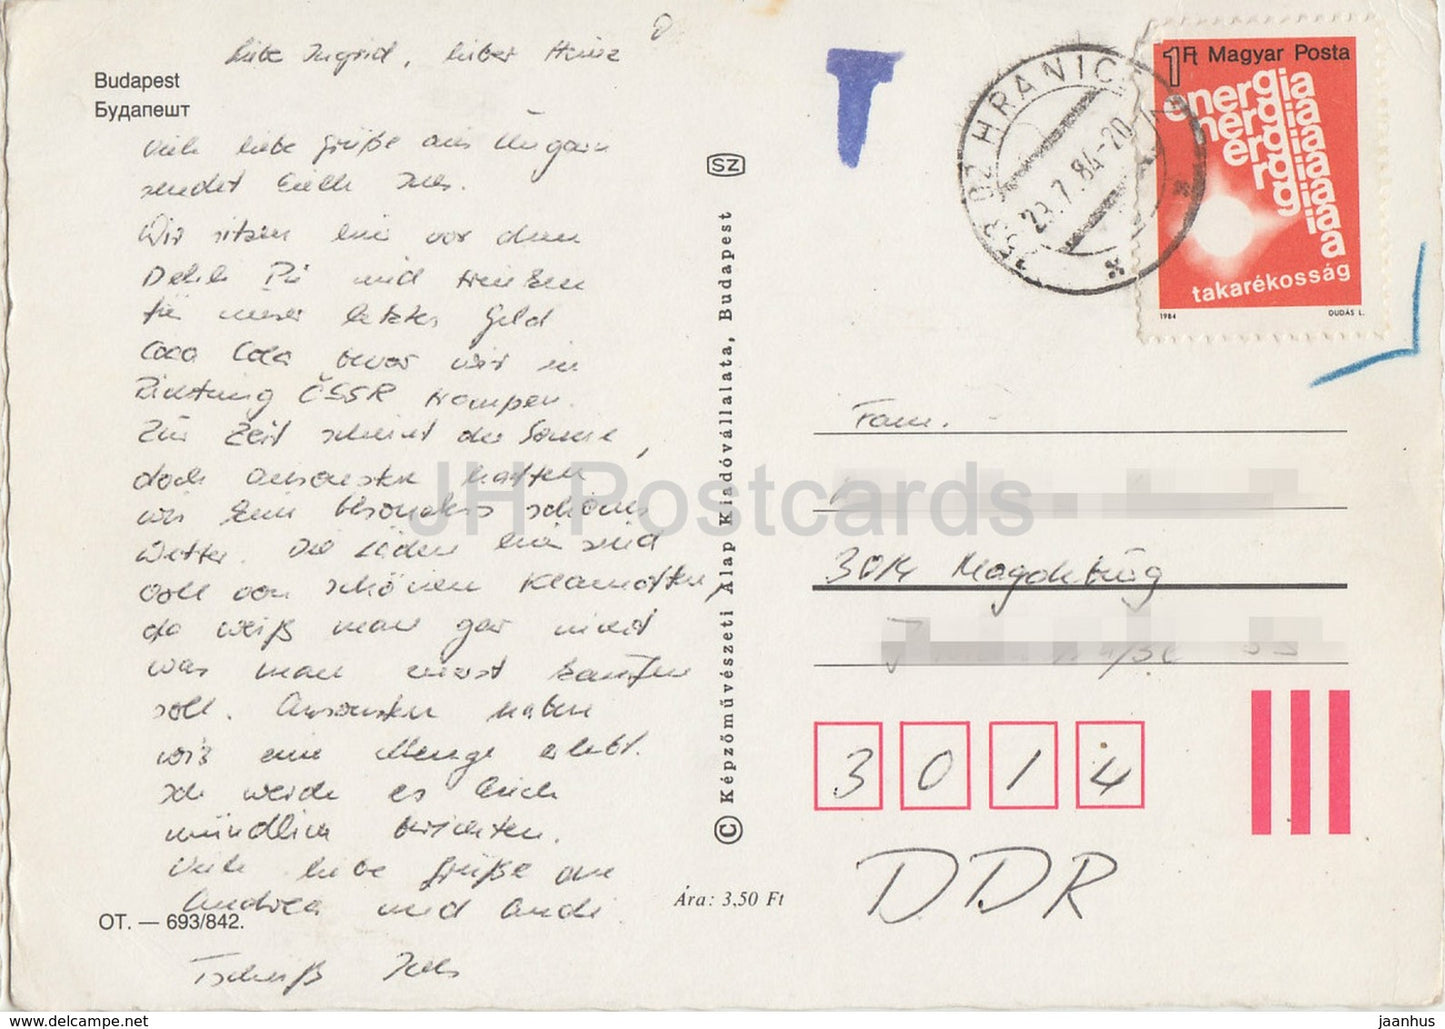 Liebe Ingrid, lieber Heinz
Budapest
Будапешт
Viele liebe Grüße aus Ungarn
sendet Euch
Wir sitzen hier vor dem
und
für unser letztes Geld
Coca Cola bevor wir in
Richtung ČSSR trampen.
Zur Zeit scheint die Sonne,
doch ansonsten hatten
wir kein besonders schönes
Wetter. Die Läden hier sind
voll von schönen Klamotten,
da weiß man gar nicht
was man zuerst kaufen
soll. Ansonsten haben
wir eine Menge erlebt.
Ich werde es Euch
mündlich berichten.
Viele liebe Grüße an
Andrea und Andi.
OT. — 693/842.
Tschüß
SZ
© Képzőművészeti Alap Kiadóvállalata, Budapest
Ára: 3,50 Ft
T
753 02 HRANICE
23.7.84-20
1 Ft Magyar Posta
energia
takarékosság
1984 DUDÁS L.
Fam.
3014 Magdeburg
3014
DDR
JH Postcards
www.delcampe.net
jaanhus